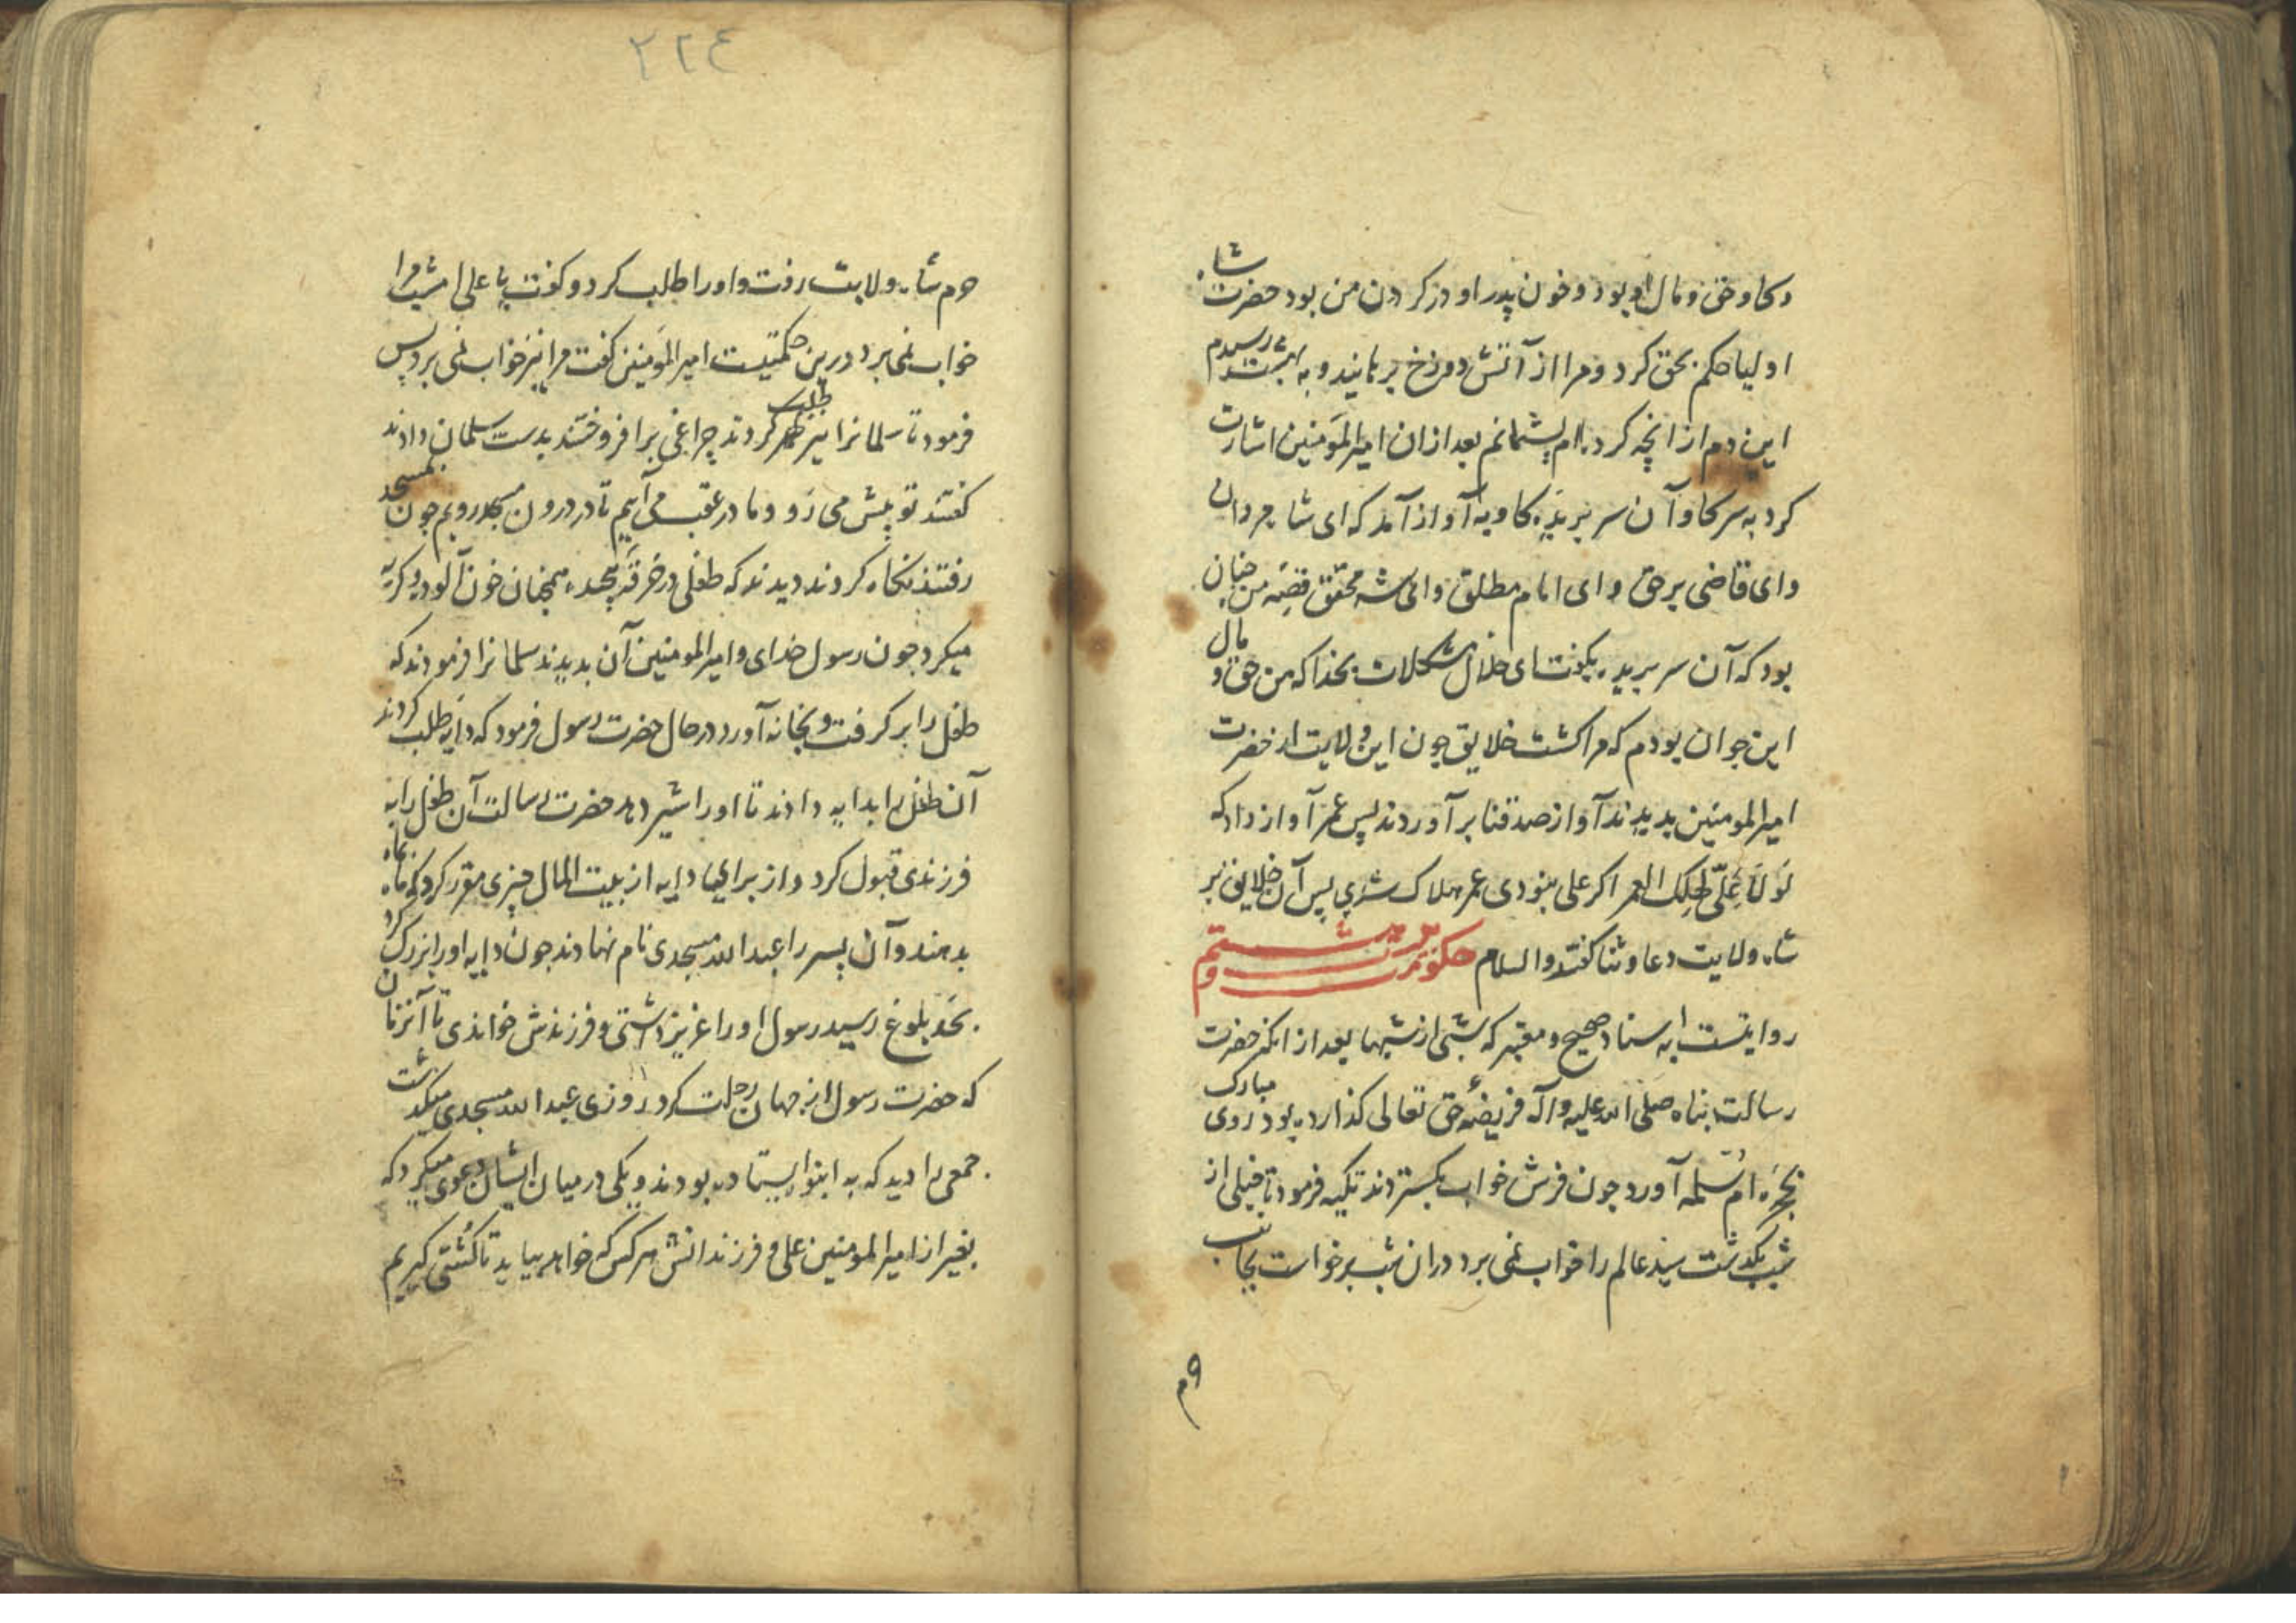 و کاو حق و مال او بود و خون پدر او در کردن من بود حضرت شاه
اولیا حکم بحق کرد و مرا از آتش دوزخ برهانید و به بهشت رسیدم
این دم از انچه کرده ام پشیمانم بعد ازان امیرالمؤمنین اشارت
کرد به سر کاو آن سر بریده کاو به آواز آمد که ای شاه مردان
وای قاضی بر حق و ای امام مطلق وای شه محقق قصه من چنان
بود که آن سر بریده بگفت ای حلال مشکلات بخدا که من حق و مال
این جوان بودم که مرا کشت خلایق چون این ولایت از حضرت
امیرالمومنین بدیدند آواز صدقنا بر آوردند پس عمر آواز داد که
لَولا عَلیّ لهلک العمر اکر علی نبودی عمر هلاک شدی پس آن خلایق بر
شاه ولایت دعا و ثنا کفتند والسلام حکومت شستم
روایتست به اسناد صحیح و معتبر که شبی از شبها بعد از انکه حضرت
رسالت پناه صلی الله علیه و آله فریضهٔ حق تعالی کذارده بود روی مبارک
بحجرهٔ ام سلمه آورد چون فرش خواب بکستردند تکیه فرمود تا خیلی از
شب بکذشت سید عالم را خواب نمی برد دران شب برخواست بجانب
وم
٢٢٤
حرم شاه ولایت رفت و او را طلب کرد و کفت یا علی امشب مرا
خواب نمی برد درین حکمتیست امیرالمؤمنین کفت مرا نیز خواب نمی برد پس
فرمود تا سلمانرا نیز طلب کردند چراغی برافروختند بدست سلمان دادند
کفتند تو پیش می رَو و ما در عقب می آییم تا در درون مسجد رویم چون بمسجد
رفتند نکاه کردند دیدند که طفلی در خرقه پیچیده همچنان خون آلود و کریه
میکرد چون رسول خدای و امیرالمومنین آن بدیدند سلمانرا فرمودند که
طفل را بر کرفت و بخانه آورد در حال حضرت رسول فرمود که دایه طلب کردند
آن طفل را بدایه دادند تا او را شیر دهد حضرت رسالت آن طفل را به
فرزندی قبول کرد و از برای دایه از بیت المال چیزی مقرر کرد که ماه بماه
بدهند و آن پسر را عبدالله مسجدی نام نهادند چون دایه او را بزرک کرد
بحَد بلوغ رسید رسول او را عزیز داشتی و فرزندش خواندی تا آنزمان
که حضرت رسول از جهان رحلت کرد روزی عبدالله مسجدی میکذشت
جمعی را دید که به انبوه ایستاده بودند و یکی در میان ایشان دعوی میکرد که
بغیر از امیرالمومنین علی و فرزندانش هر کس که خواهد بیاید تا کُشتی کیریم